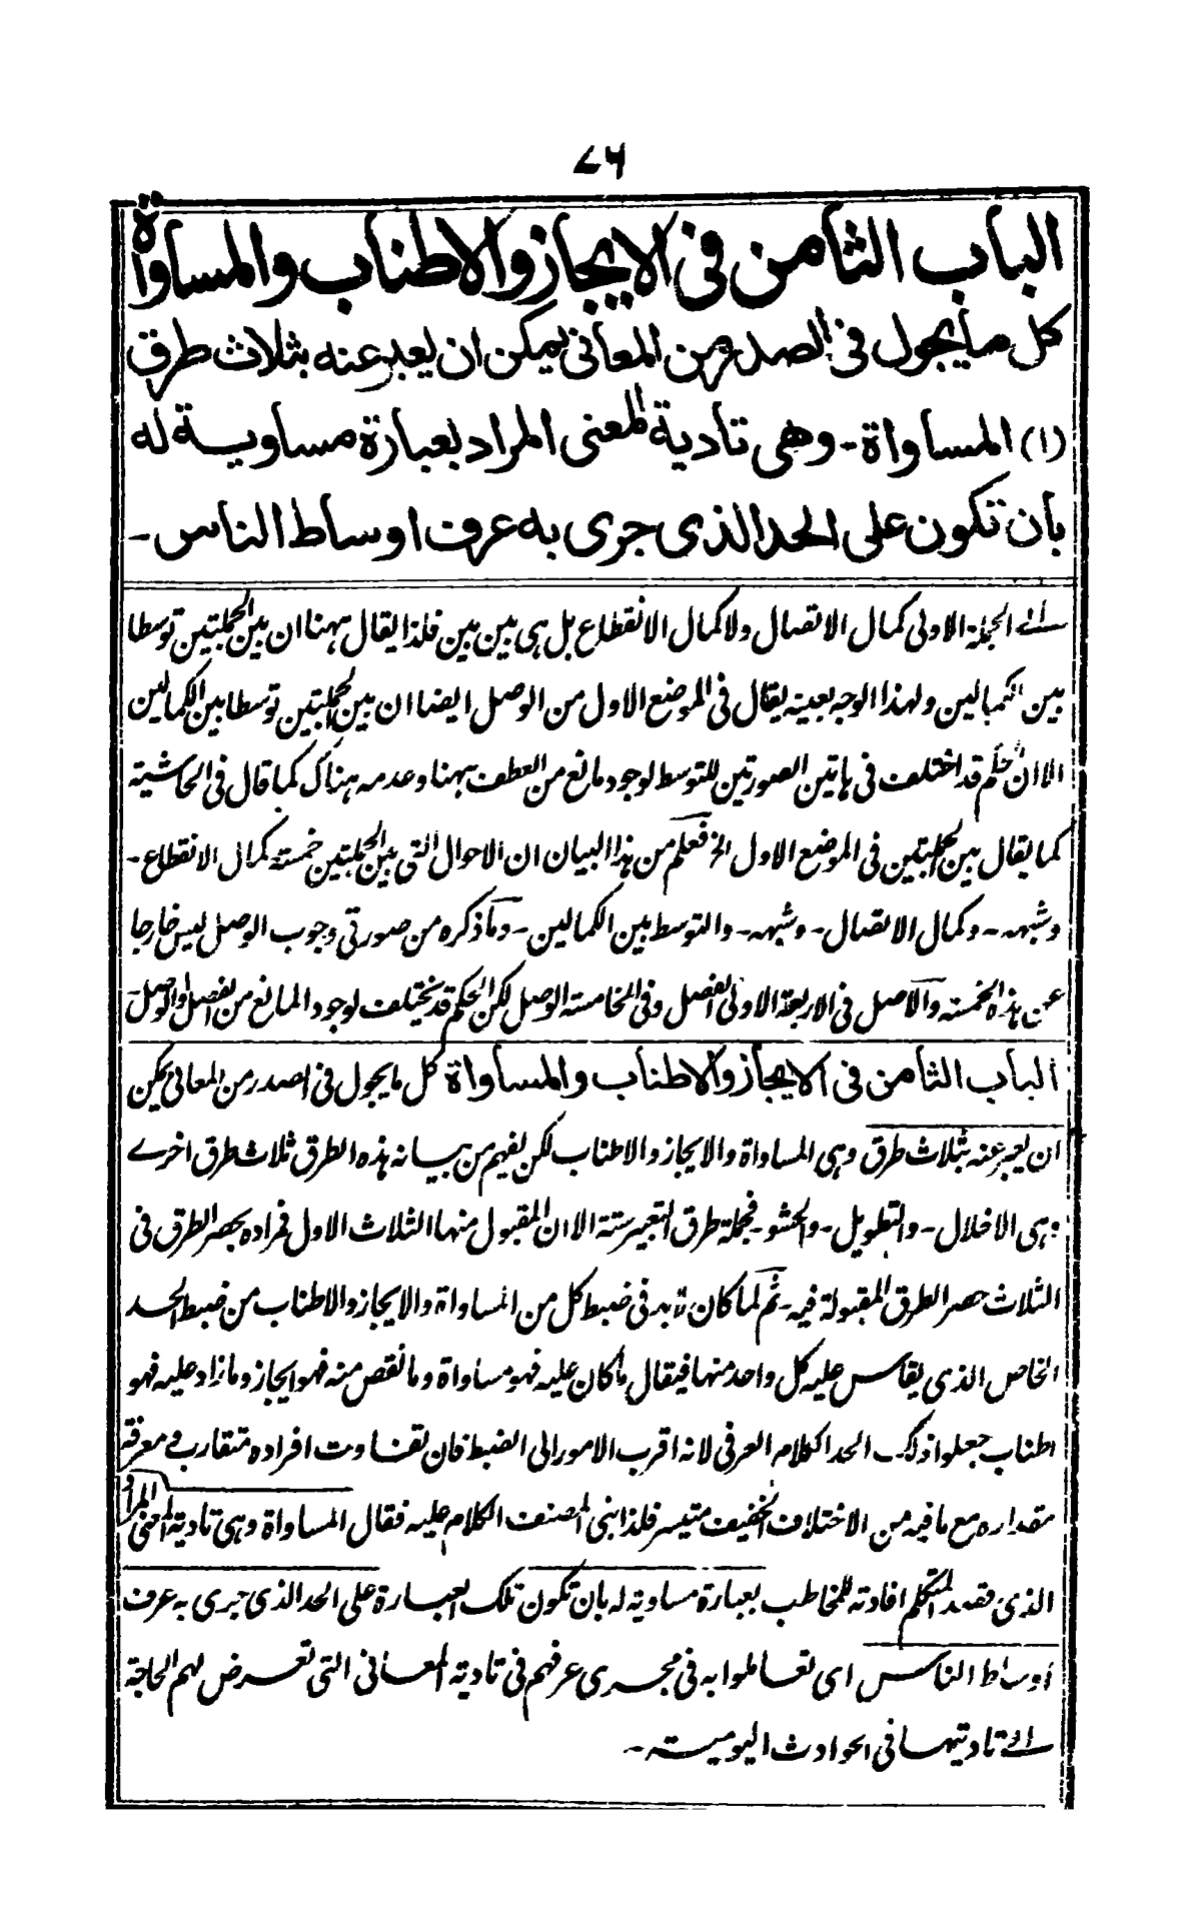 ٧٦
الباب الثامن فى الايجاز والاطناب والمساواة
كل ما يجول فى الصدر من المعانى يمكن ان يعبر عنه بثلاث طرق
(١) المساواة - وهى تادية المعنى المراد بعبارة مساوية له
بان تكون على الحد الذى جرى به عرف اوساط الناس -
الے الجملة الاولى كمال الاتصال ولا كمال الانقطاع بل هى بين بين فلذا يقال ههنا ان بين الجملتين توسطا
بين الكمالين ولهذا الوجه بعينه يقال فى الموضع الاول من الوصل ايضا ان بين الجملتين توسطا بين الكمالين
الا ان الحكم قد اختلف فى هاتين الصورتين للتوسط لوجود مانع من العطف ههنا وعدمه هناك كما قال فى الحاشية
كما يقال بين الجملتين فى الموضع الاول الخ فعلم من هذا البيان ان الاحوال التى بين الجملتين خمسة كمال الانقطاع -
وشبهه - وكمال الاتصال - وشبهه - والتوسط بين الكمالين - وما ذكره من صورتى وجوب الوصل ليس خارجا
عن هذه الخمسة والاصل فى الاربعة الاولى الفصل وفى الخامسة الوصل لكن الحكم قد يختلف لوجود المانع من الفصل او الوصل -
الباب الثامن فى الايجاز والاطناب والمساواة كل ما يجول فى الصدر من المعانى يمكن
ان يعبر عنه بثلاث طرق وهى المساواة والايجاز والاطناب لكن يفهم من بيانه هذه الطرق ثلاث طرق اخرے
وهى الاخلال - والتطويل - والحشو - فجملة طرق التعبير ستة الا ان المقبول منها الثلاث الاول فمراده بحصر الطرق فى
الثلاث حصر الطرق المقبولة فيه - ثم لما كان لا بد فى ضبط كل من المساواة والايجاز والاطناب من ضبط الحد
الخاص الذى يقاس عليه كل واحد منها فيقال ما كان عليه فهو مساواة وما نقص منه فهو ايجاز وما زاد عليه فهو
اطناب جعلوا ذلك الحد الكلام العرفى لانه اقرب الامور الى الضبط فان تفاوت افراده متقارب ومعرفة
مقداره مع ما فيه من الاختلاف الخفيف متيسر فلذا بنى المصنف الكلام عليه فقال المساواة وهى تادية المعنى المراد
الذى قصد المتكلم افادته للمخاطب بعبارة مساوية له بان تكون تلك العبارة على الحد الذى جرى به عرف
اوساط الناس اى تعاملوا به فى مجرى عرفهم فى تادية المعانى التى تعرض لهم الحاجة
الے تاديتها فى الحوادث اليومية -